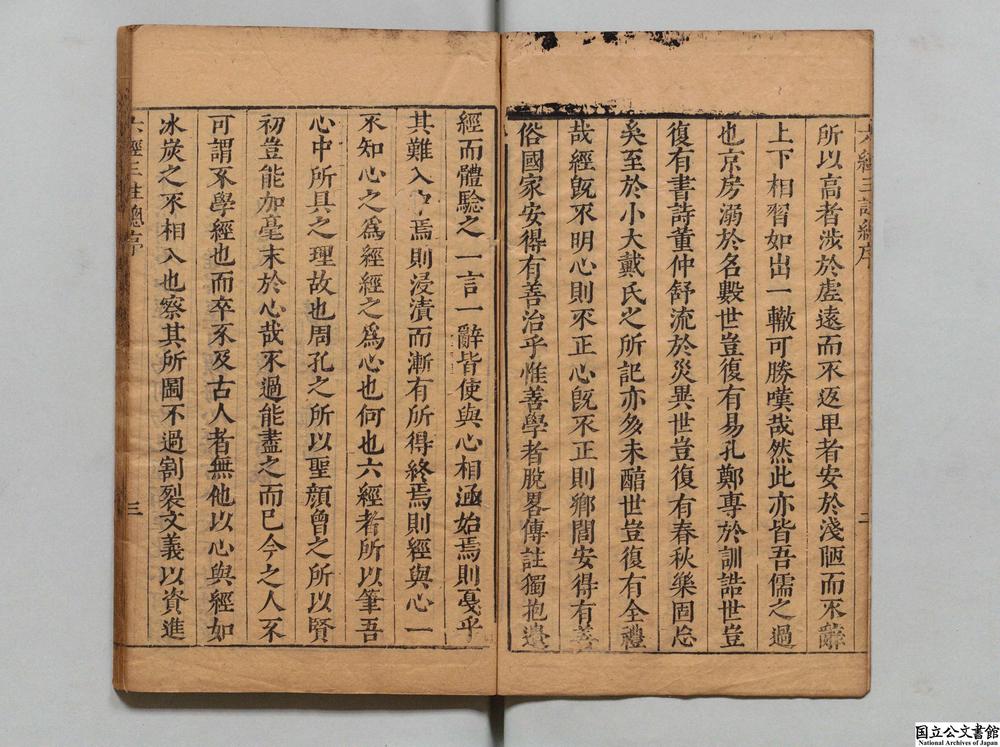 六經三註總序
二
所以高者涉於虛遠而不返卑者安於淺陋而不辭
上下相習如出一轍可勝嘆哉然此亦皆吾儒之過
也京房溺於名數世豈復有易孔鄭專於訓詁世豈
復有書詩董仲舒流於災異世豈復有春秋樂固忘
矣至於小大戴氏之所記亦多未醕世豈復有全禮
哉經旣不明心則不正心旣不正則鄉閭安得有善
俗國家安得有善治乎惟善學者脫畧傳註獨抱遺
經而體驗之一言一辭皆使與心相涵始焉則戞乎
其難入中焉則浸漬而漸有所得終焉則經與心一
不知心之爲經經之爲心也何也六經者所以筆吾
心中所具之理故也周孔之所以聖顏曾之所以賢
初豈能加毫末於心哉不過能盡之而已今之人不
可謂不學經也而卒不及古人者無他以心與經如
冰炭之不相入也察其所圖不過割裂文義以資進
六經三註總序
三
国立公文書館
National Archives of Japan